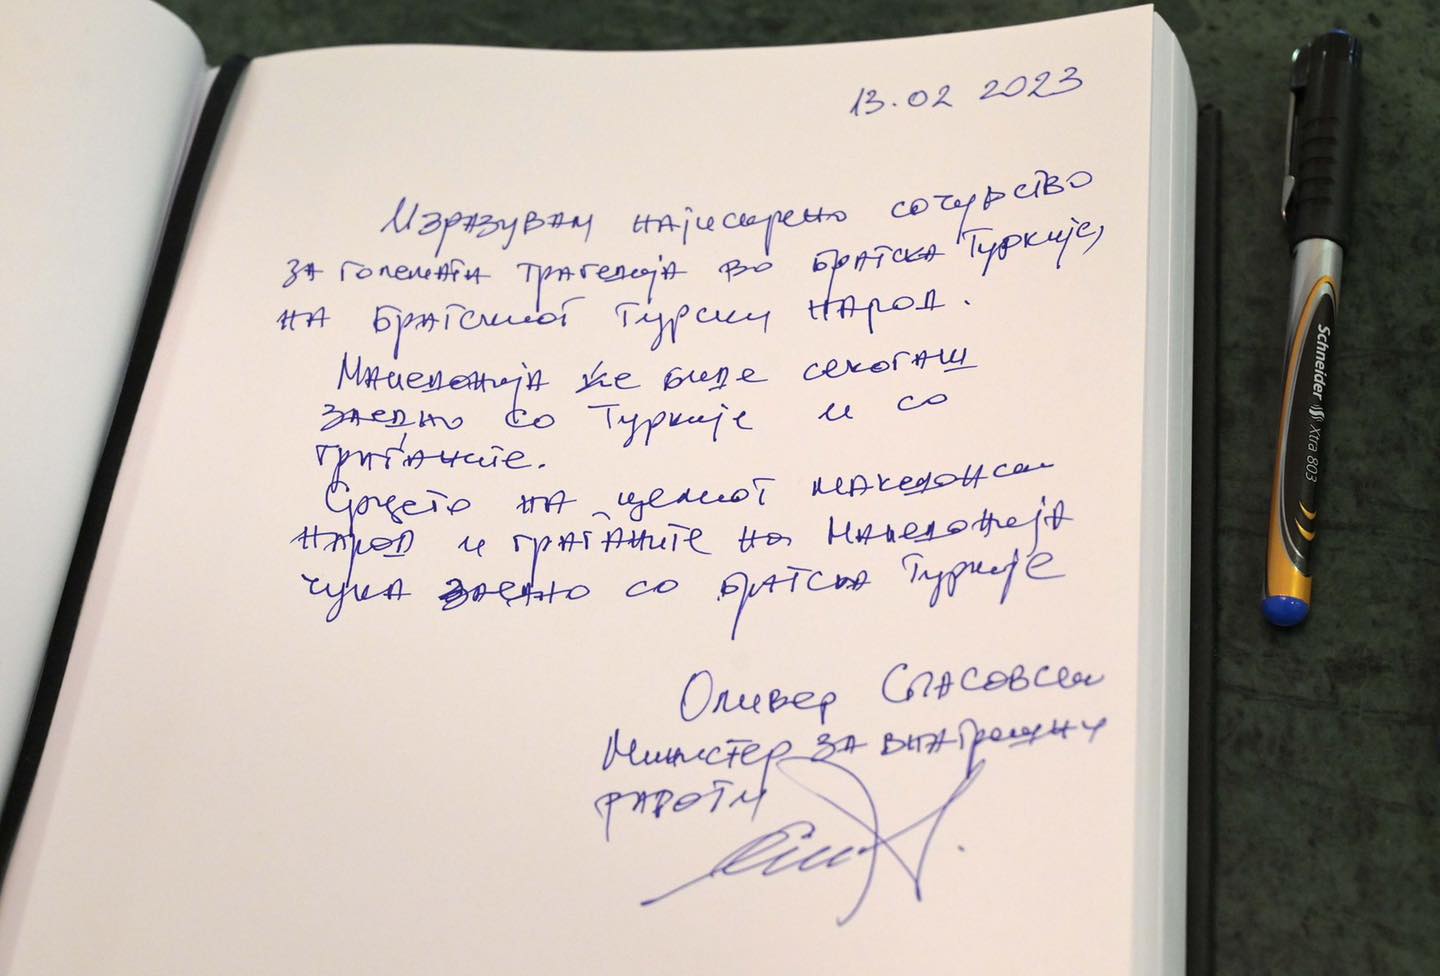 13.02 2023
Изразувам најискрено сочувство
за големата трагедија во братска Туркије,
на братскиот Турски народ.
Македонија ќе биде секогаш
заедно со Туркије и со
граѓаните.
Срцето на целиот македонски
народ и граѓаните на Македонија
чука заедно со братска Туркије
Оливер Спасовски
Министер за внатрешни
работи
Schneider Xtra 803